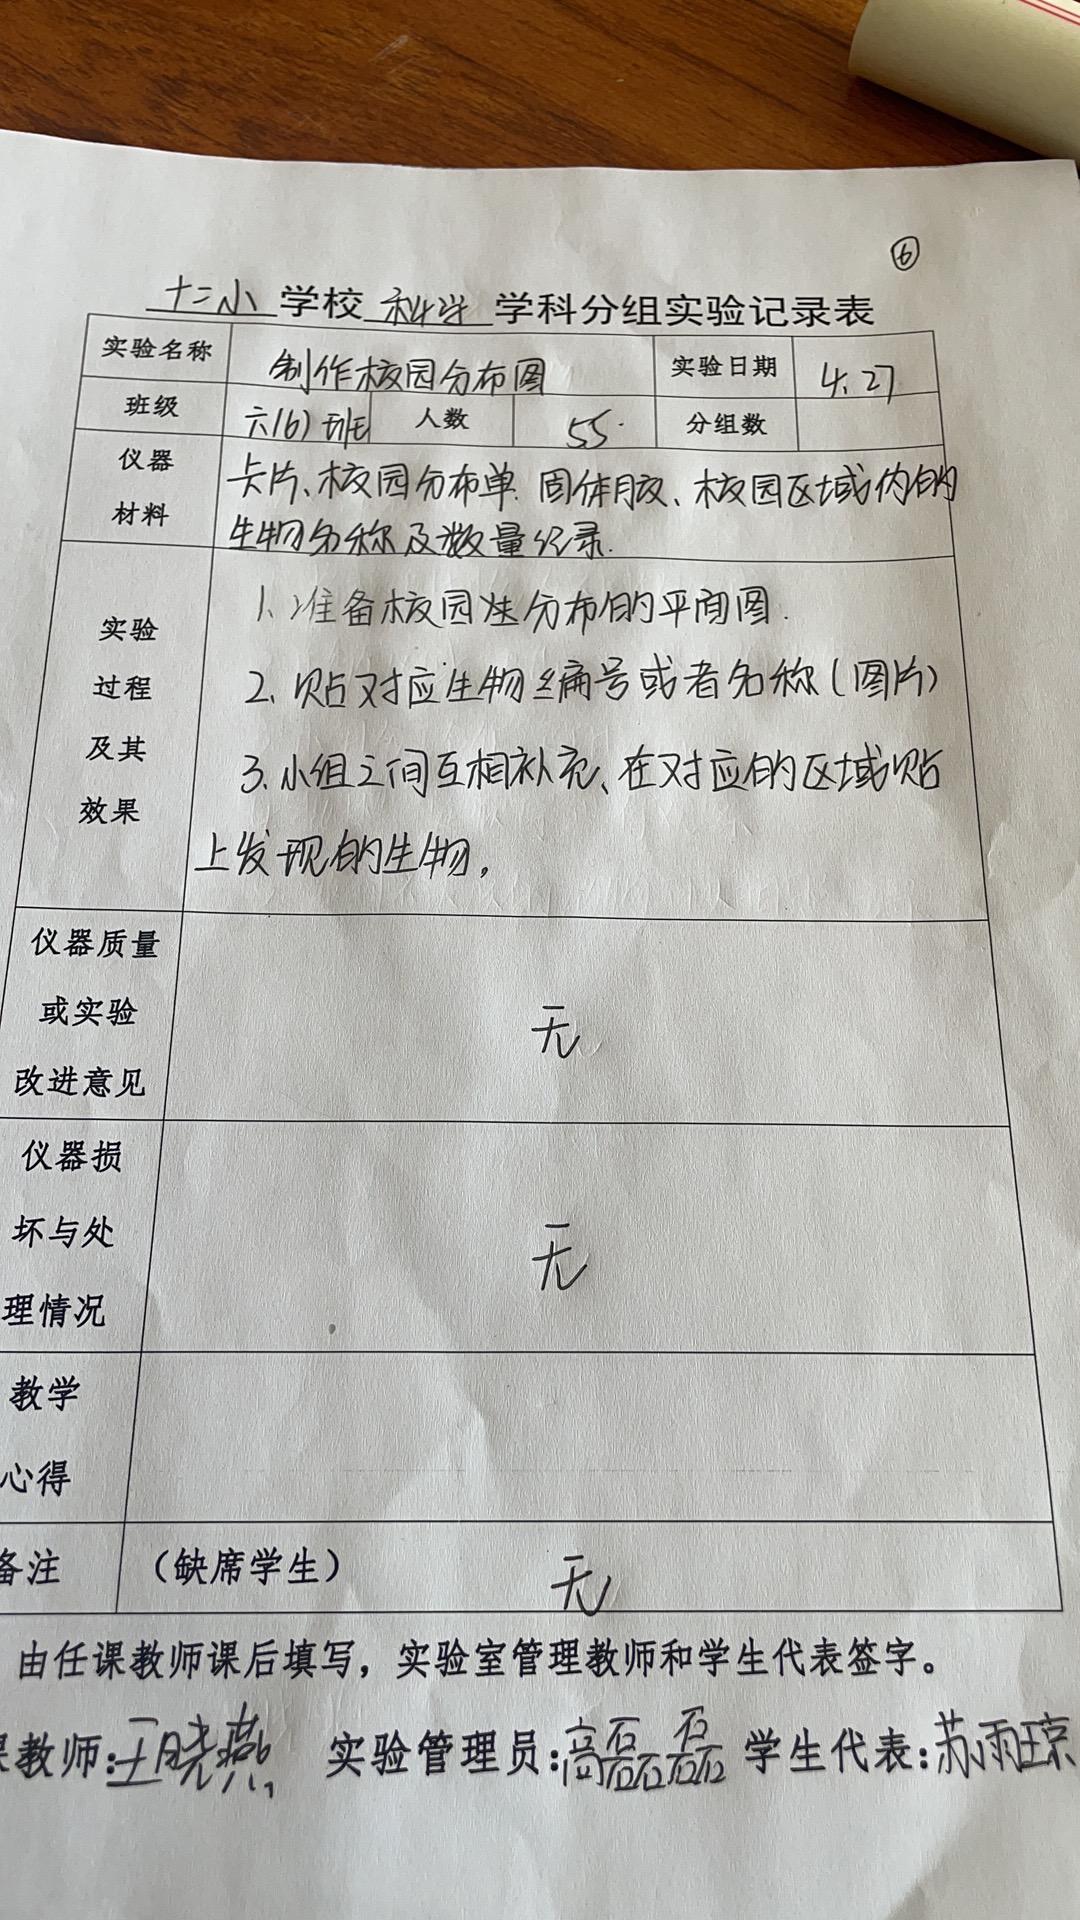 ⑥
十二小 学校 科学 学科分组实验记录表
实验名称 制作校园分布图 实验日期 4.27
班级 六(6)班 人数 55. 分组数
仪器 卡片、校园分布单.固体胶、校园区域内的
材料 生物名称及数量纪录.
1.准备校园分布的平面图.
实验
2.贴对应生物编号或者名称(图片)
过程
及其 3.小组之间互相补充、在对应的区域贴
效果
上发现的生物,
仪器质量
或实验 无
改进意见
仪器损
坏与处 无
理情况
教学
心得
备注 (缺席学生) 无
由任课教师课后填写,实验室管理教师和学生代表签字。
课教师:王晓燕 实验管理员:高磊磊 学生代表:苏雨琼